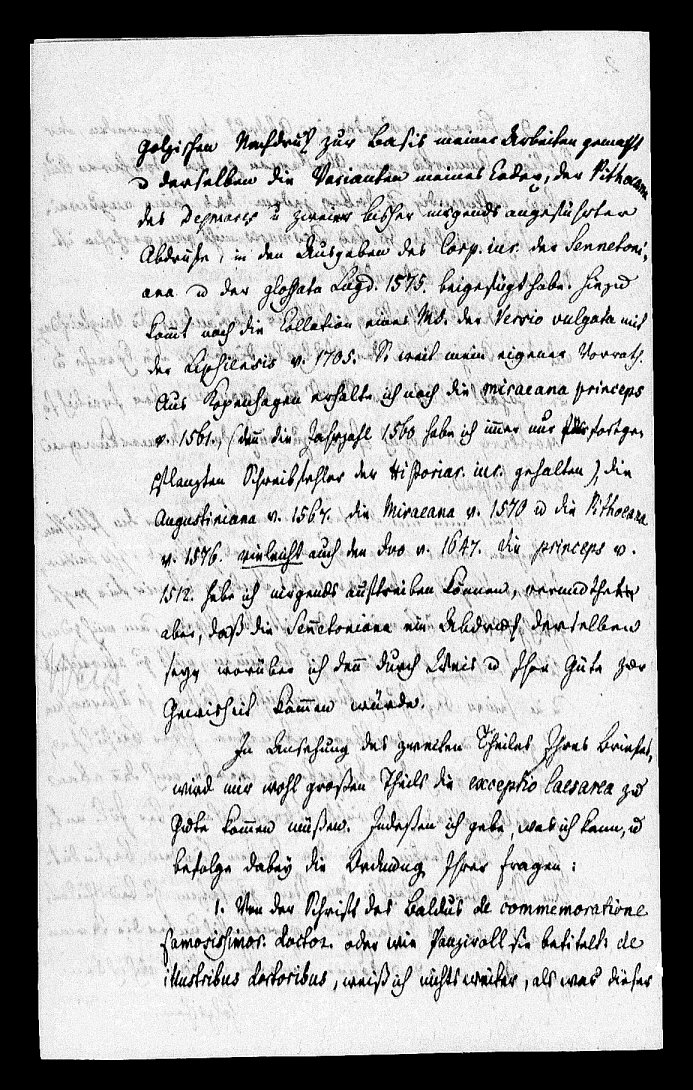 golzischen Nachdruk zur Basis meiner Arbeiten gemacht
u derselben die Varianten meines Codex, der Pithoeana
des u zweier bisher nirgends angeführter
Abdruke, in den Ausgaben des Corp. iur. der Sennetoni-
ana u der glossata Lugd. 1575. beigefügt habe. Hiezu
komt noch die Collation eines Ms. der Versio vulgata mit
der Lipsiensis v. 1705. So weit mein eigener Vorrath.
Aus Kopenhagen erhalte ich noch die miraeana princeps
v. 1561., (denn die Jahrzahl 1560 habe ich immer nur für fortge-
pflanzten Schreibfehler der Historiar. iur. gehalten), die
Augustiniana v. 1567. die Miraeana v. 1570 u die Pithoeana
v. 1576. vielleicht auch den v. 1647. die princeps v.
1512. habe ich nirgends auftreiben können, vermuthete
aber, daß die Sennetoniana ein Abdruck derselben
seye worüber ich denn durch Weis u Ihre Güte zur
Gewisheit kommen würde.
In Ansehung des zweiten Theiles Ihres Briefes,
wird mir wohl großen Theils die exceptio Caesarea zu
Gute kommen müßen. Indeßen ich gebe, was ich kann, u
befolge dabey die Ordnung Ihrer Fragen:
1. Von der Schrift des Baldus de commemoratione
famosissimor. doctor. oder wie Panziroll sie betitelt de
illustribus doctoribus, weiß ich nichts weiter, als was dieser